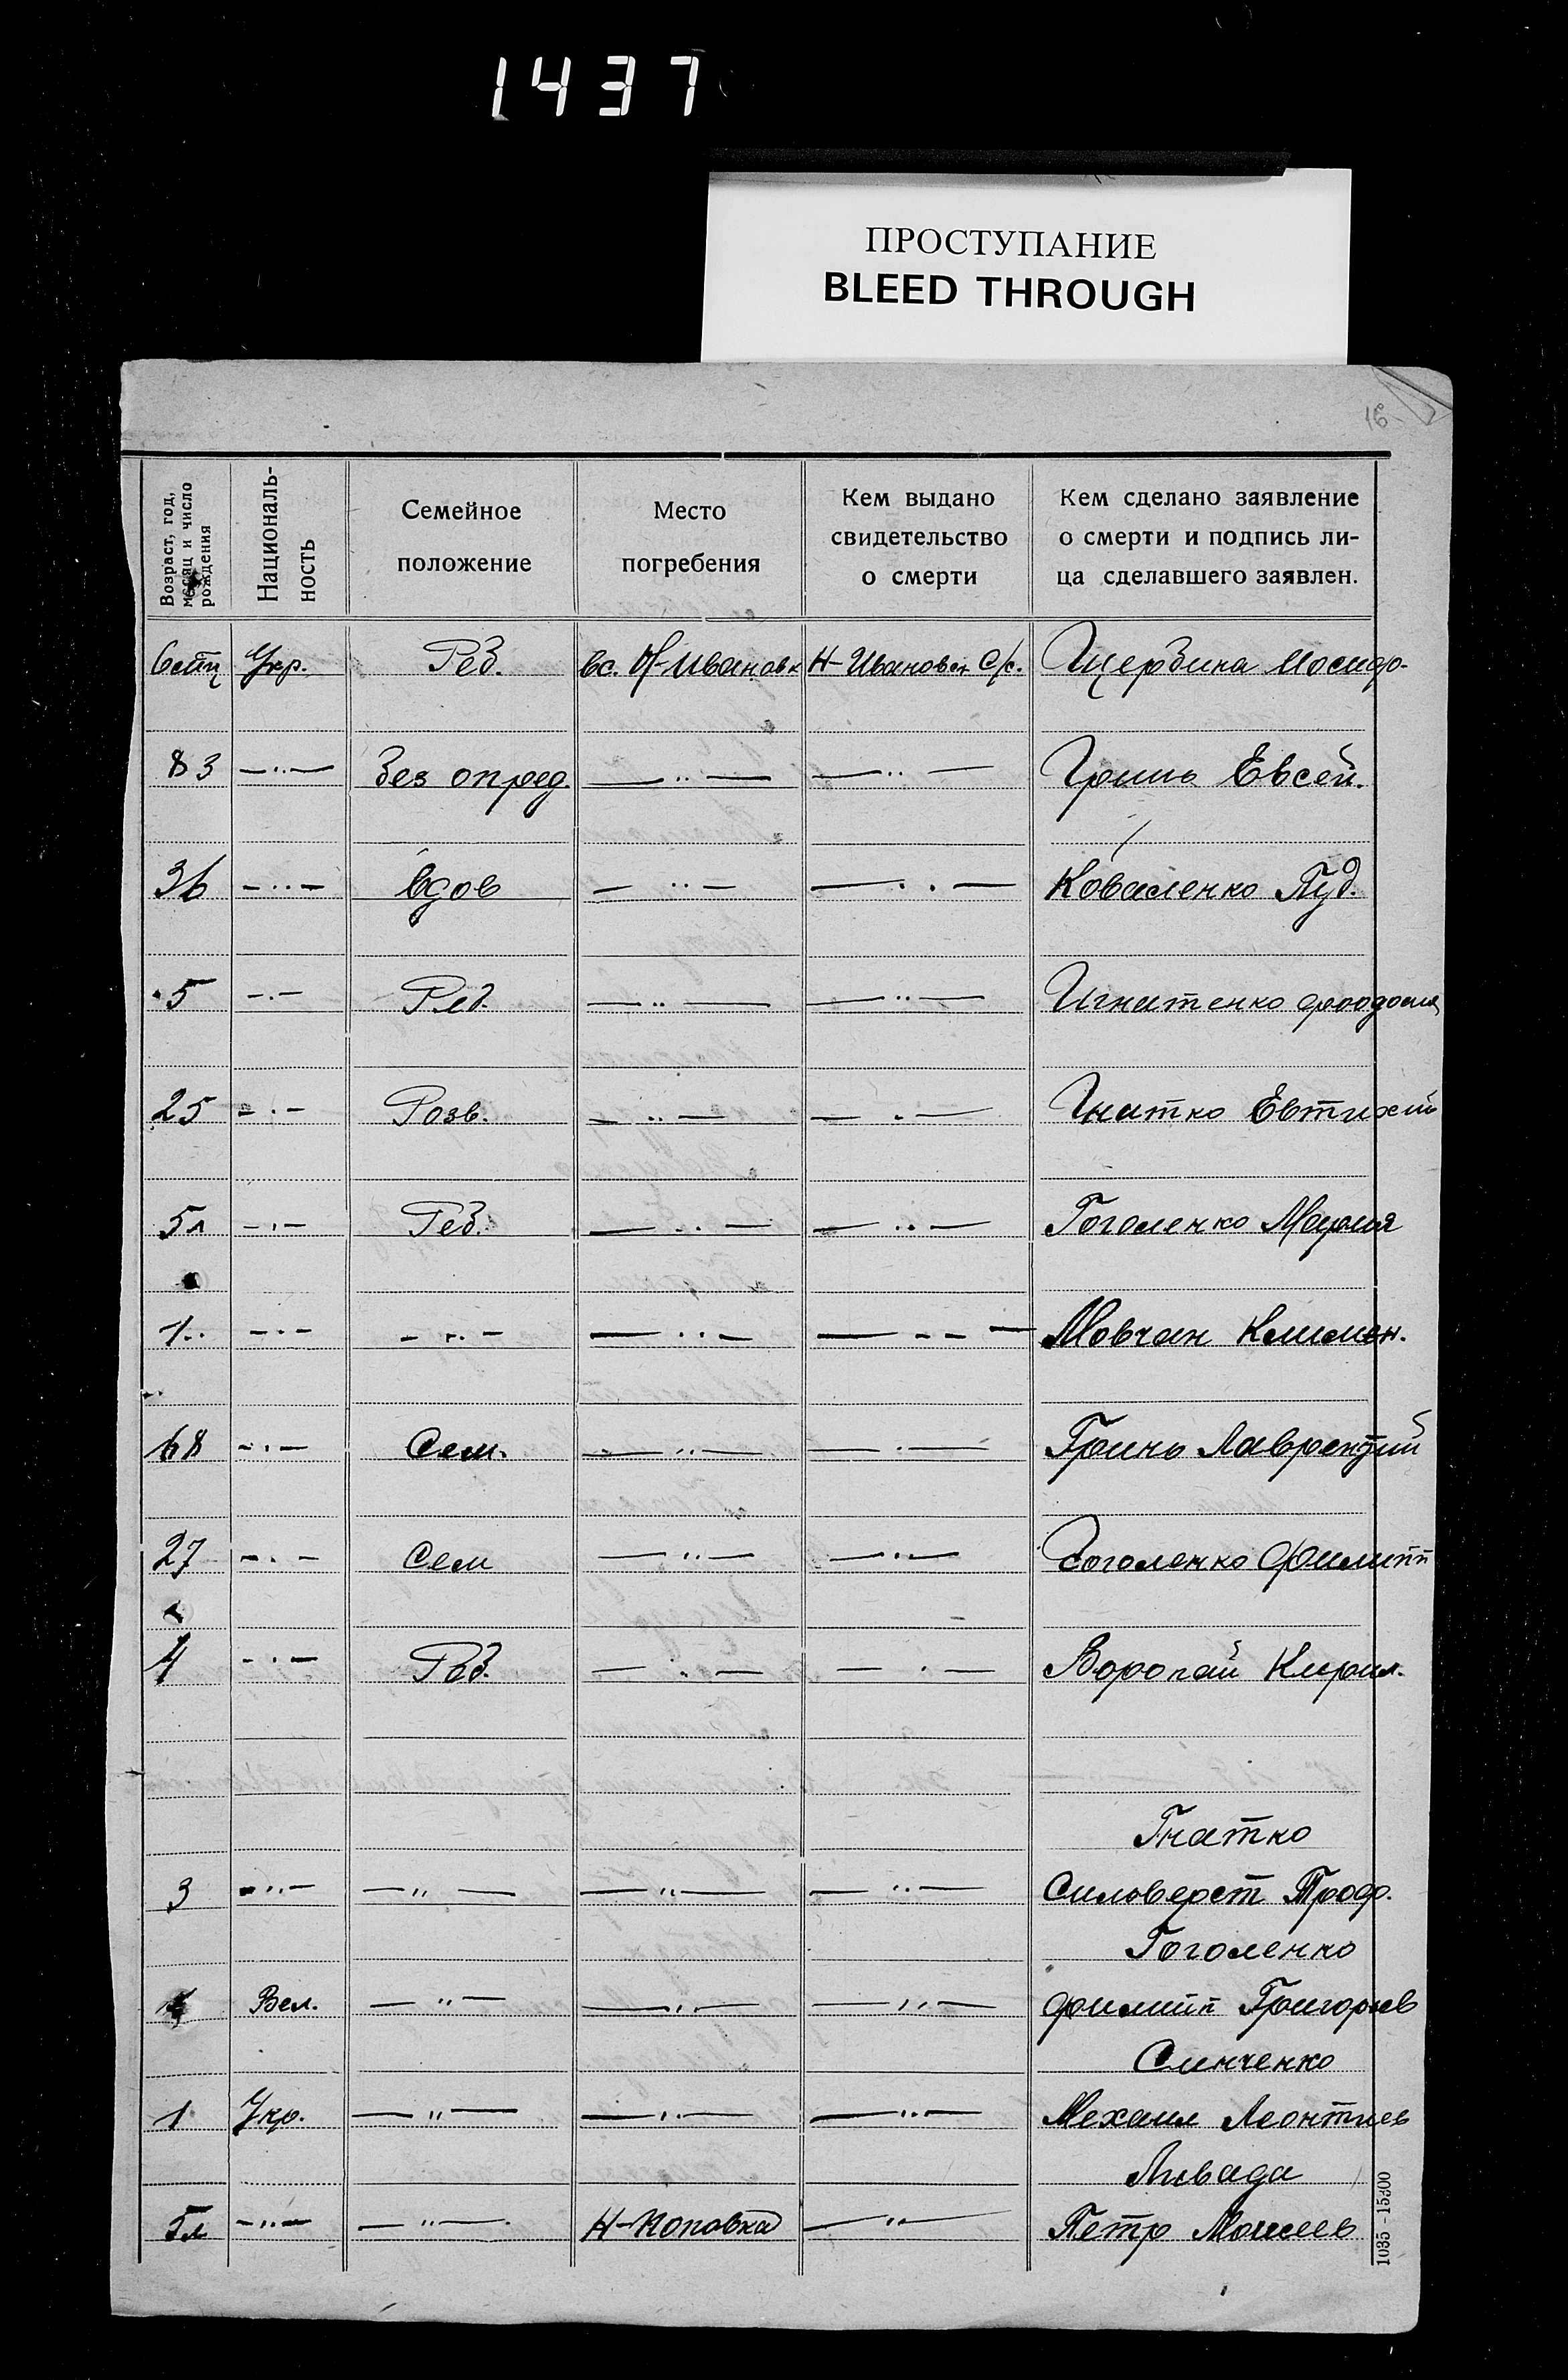 1437
ПРОСТУПАНИЕ
BLEED THROUGH
16
Возраст, год, месяц и число рождения
Националь-ность
Семейное положение
Место погребения
Кем выдано свидетельство о смерти
Кем сделано заявление о смерти и подпись ли-ца сделавшего заявлен.
Укр. Реб. вс. Н-Ивановк Н-Ивановск с/с. Щербина Иосиф.
83 —··— Без опред. —··— —··— Гринь Евсей.
36 —··— Вдов —··— —··— Коваленко Пуд.
5 —·— Реб. —··— —··— Игнатенко
25 —·— Розв. —··— —·— Гнатко Евтихий
5л —·— Реб. —··— —··— Гоголенко Мария
1·· —·— —··— —··— — – – — Мовчан Климен.
68 —·— Сем. —··— —·— Гринь Лаврентий
27 —·— Сем —··— —··— Гоголенко Филипп
4 —·— Реб. —··— —·— Воропай Кирил.
Гнатко
3 —··— —"— —"— —··— Сильверст Троф.
Гоголенко
Вел. —"— —··— —"— Филипп Григорьев
Синченко
1 Укр. —"— —··— —··— Михаил Леонтиев
Ливада
5л —··— —"— Н-Поповка —"— Петр Моисеев
1035 – 15300